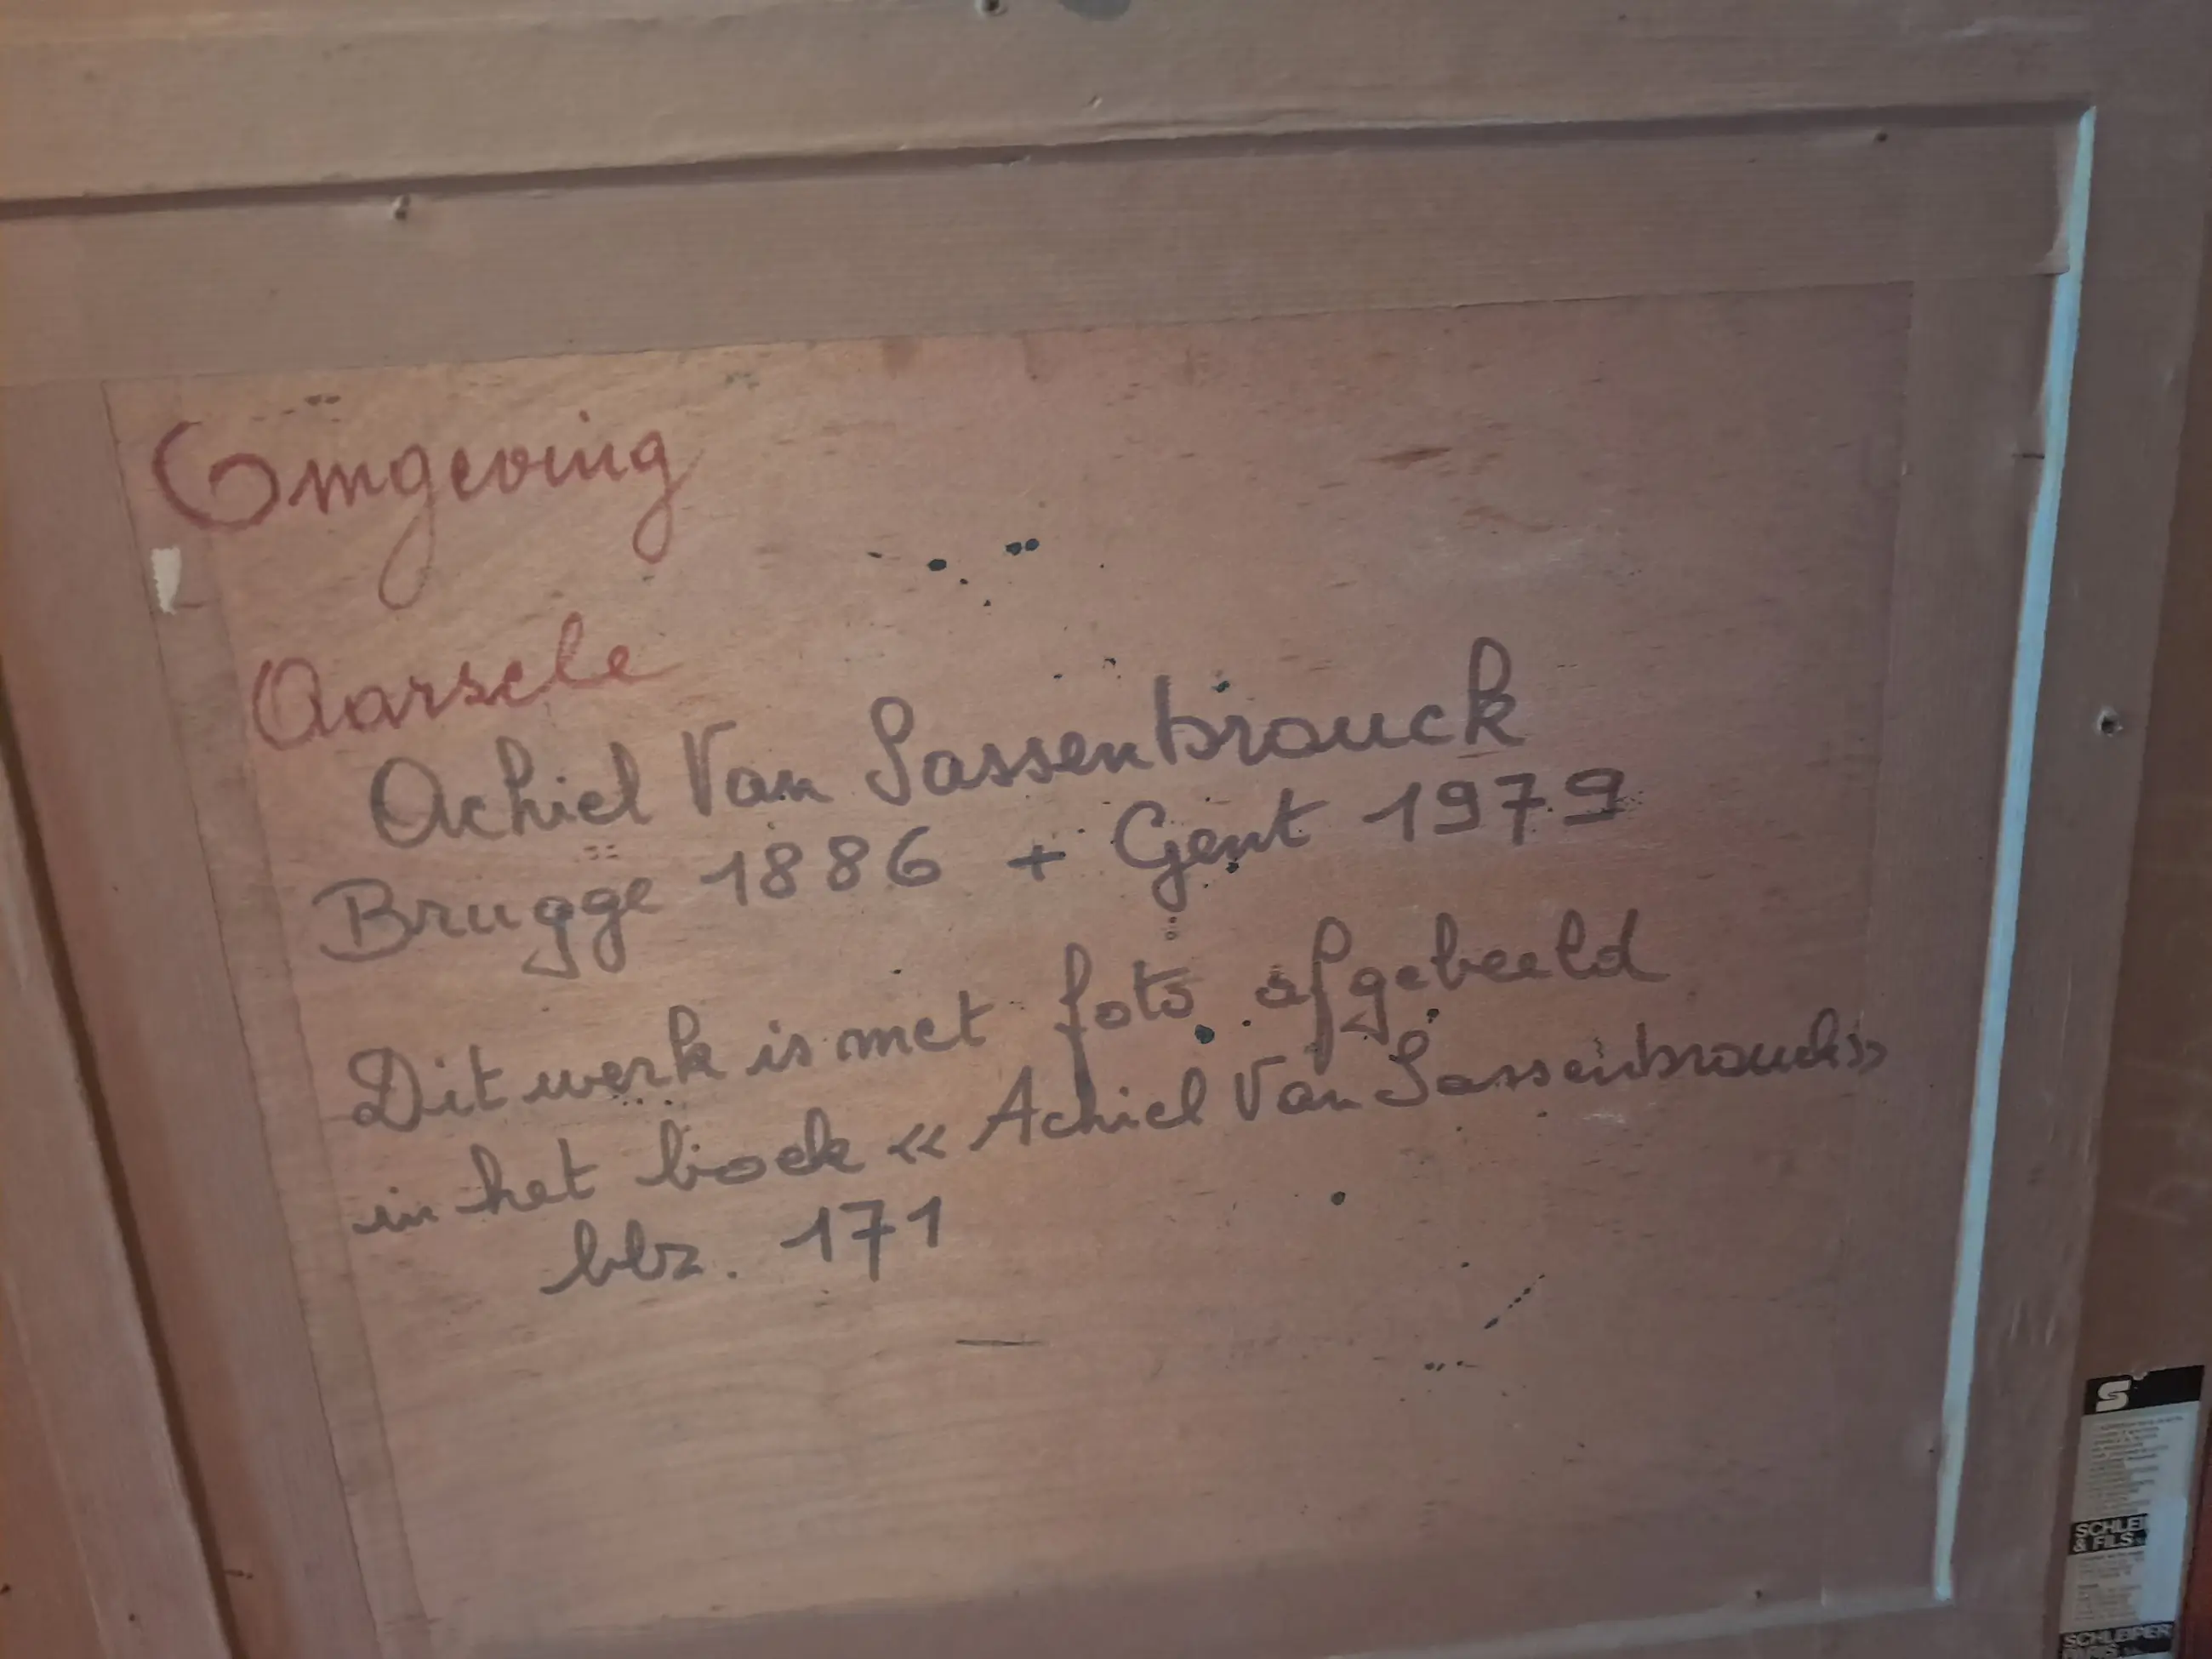 Omgeving
Aarsele
Achiel Van Sassenbrouck
Brugge 1886 + Gent 1979
Dit werk is met foto afgebeeld
in het boek « Achiel Van Sassenbrouck »
blz. 171
S
SCHLEI
& FILS
SCHLEIPER